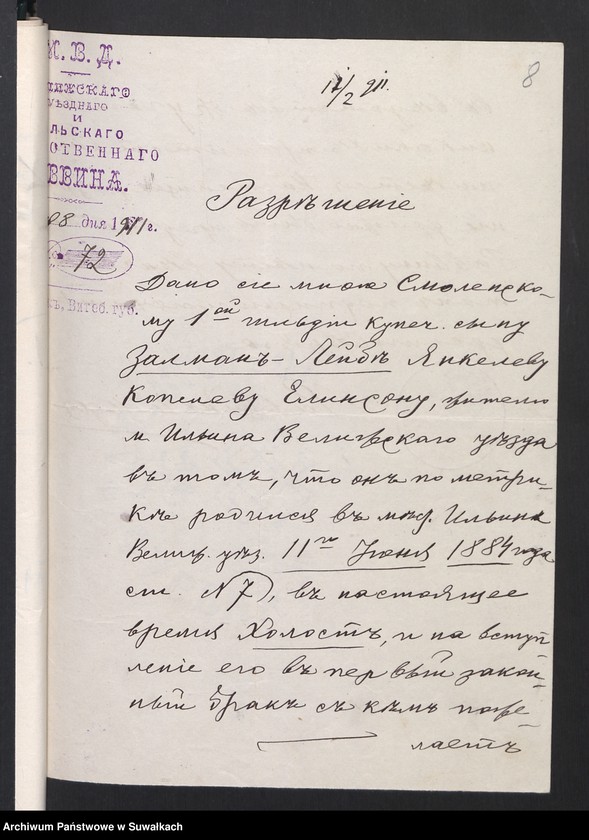 И. В. Д.
ѢЗДНАГО
И
ЛЬСКАГО
СТВЕННАГО
ВВИНА.
28 дня 1911 г.
72
ъ, Витеб. губ.
8
17/2 911.
Разрѣшеніе
Дано сіе мною Смоленско-
му 1ой гильдіи купеч. сыну
Залманъ-Лейбѣ Янкелеву
Копелеву Елинсону, жителю
м. Ильина Велижскаго уѣзда
въ томъ, что онъ по метри-
кѣ родился въ мѣс. Ильинѣ
Велиж. уѣз. 11го Іюня 1884 года
ст. № 7), въ настоящее
время Холостъ, и на вступ-
леніе его въ первый закон-
ный бракъ съ кѣмъ поже-
лаетъ
Archiwum Państwowe w Suwałkach